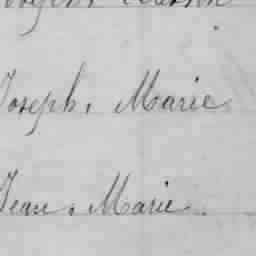 Joseph, Marie
Jean, Marie